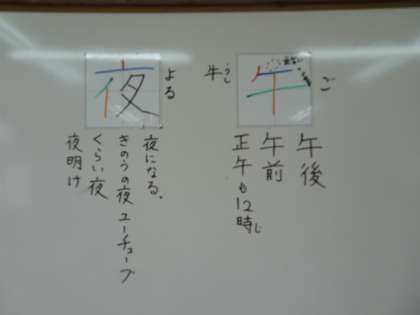 午
ご
牛
うし
午後
午前
正午も12時
じ
夜
よる
夜になる、
きのうの夜ユーチューブ
くらい夜
夜明け